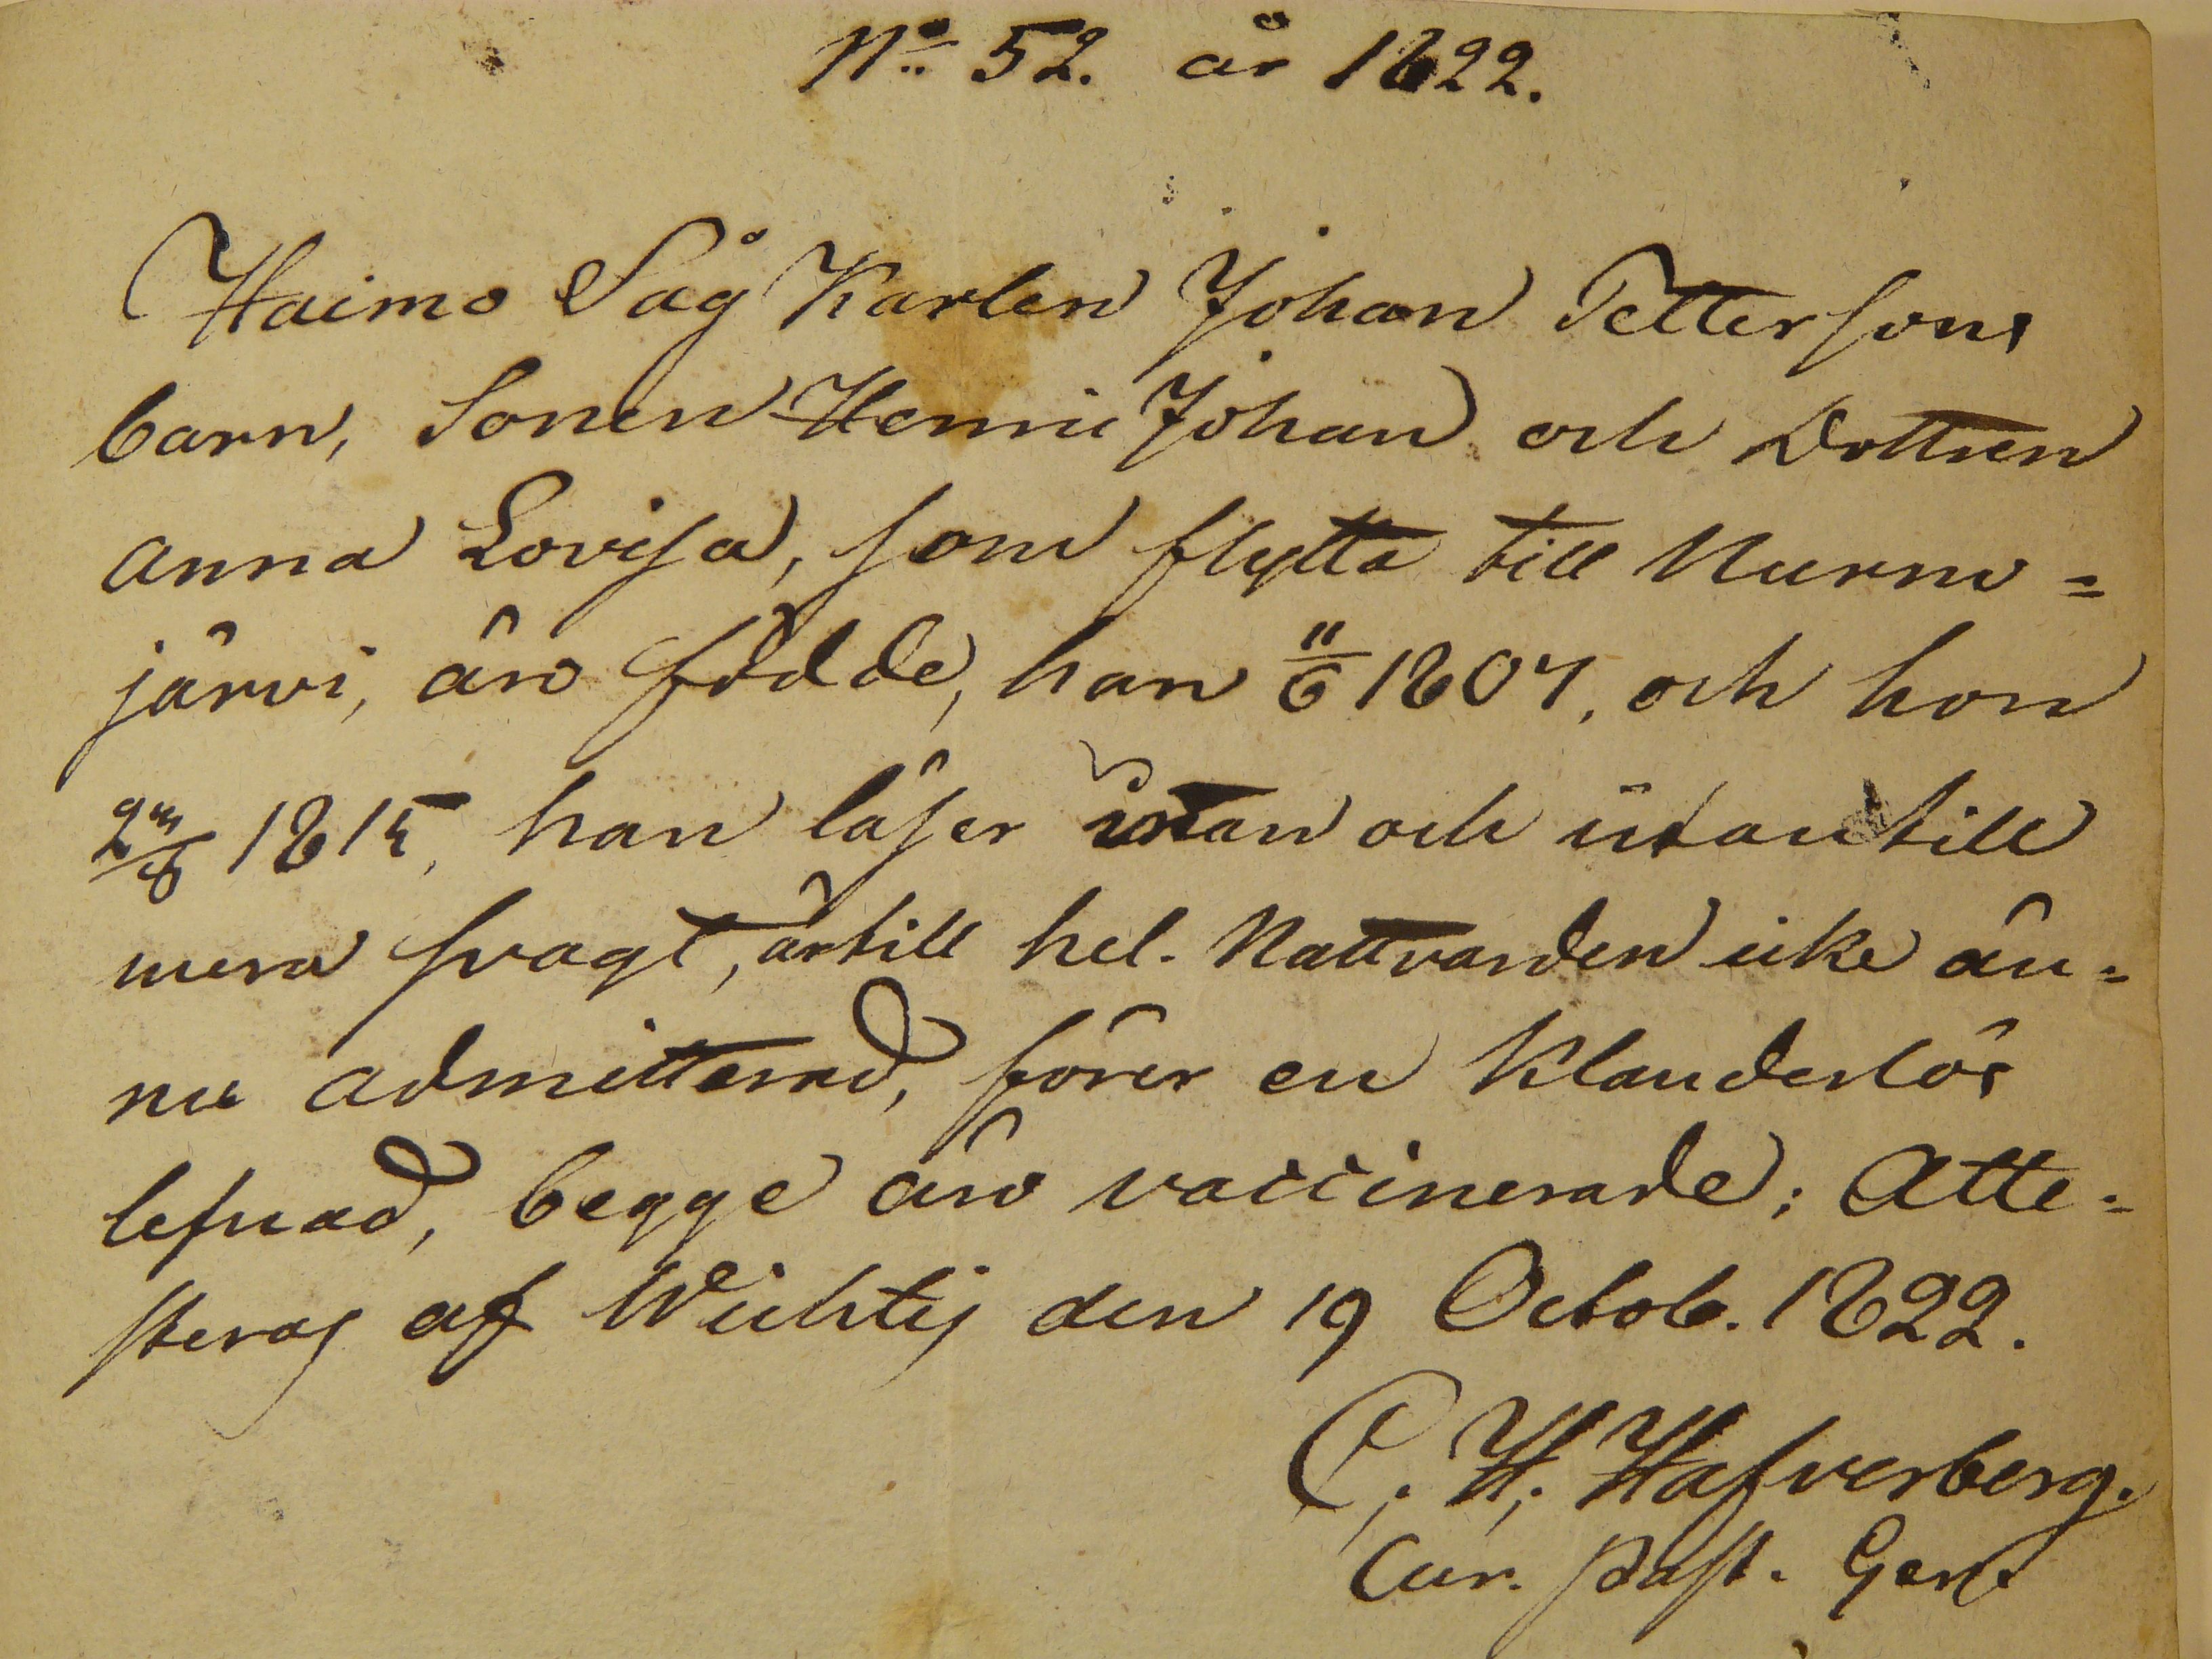 No 52. år 1822.
Haimo Såg Karlen Johan Pettersons
barn, Sonen Henric Johan och Dottren
Anna Lovisa, som flytta till Nurmo=
järvi, äro födde, han 11/6 1807, och hon
1815, han läser innan och utantill
mera svagt, är till hel. Nattvarden icke än=
nu admitterad, förer en klanderlös
lefnad, begge äro vaccinerade; Atte=
steras af Wichtis den 19 Octob. 1822.
C. H. Hafverberg.
Cur. Past. Gens